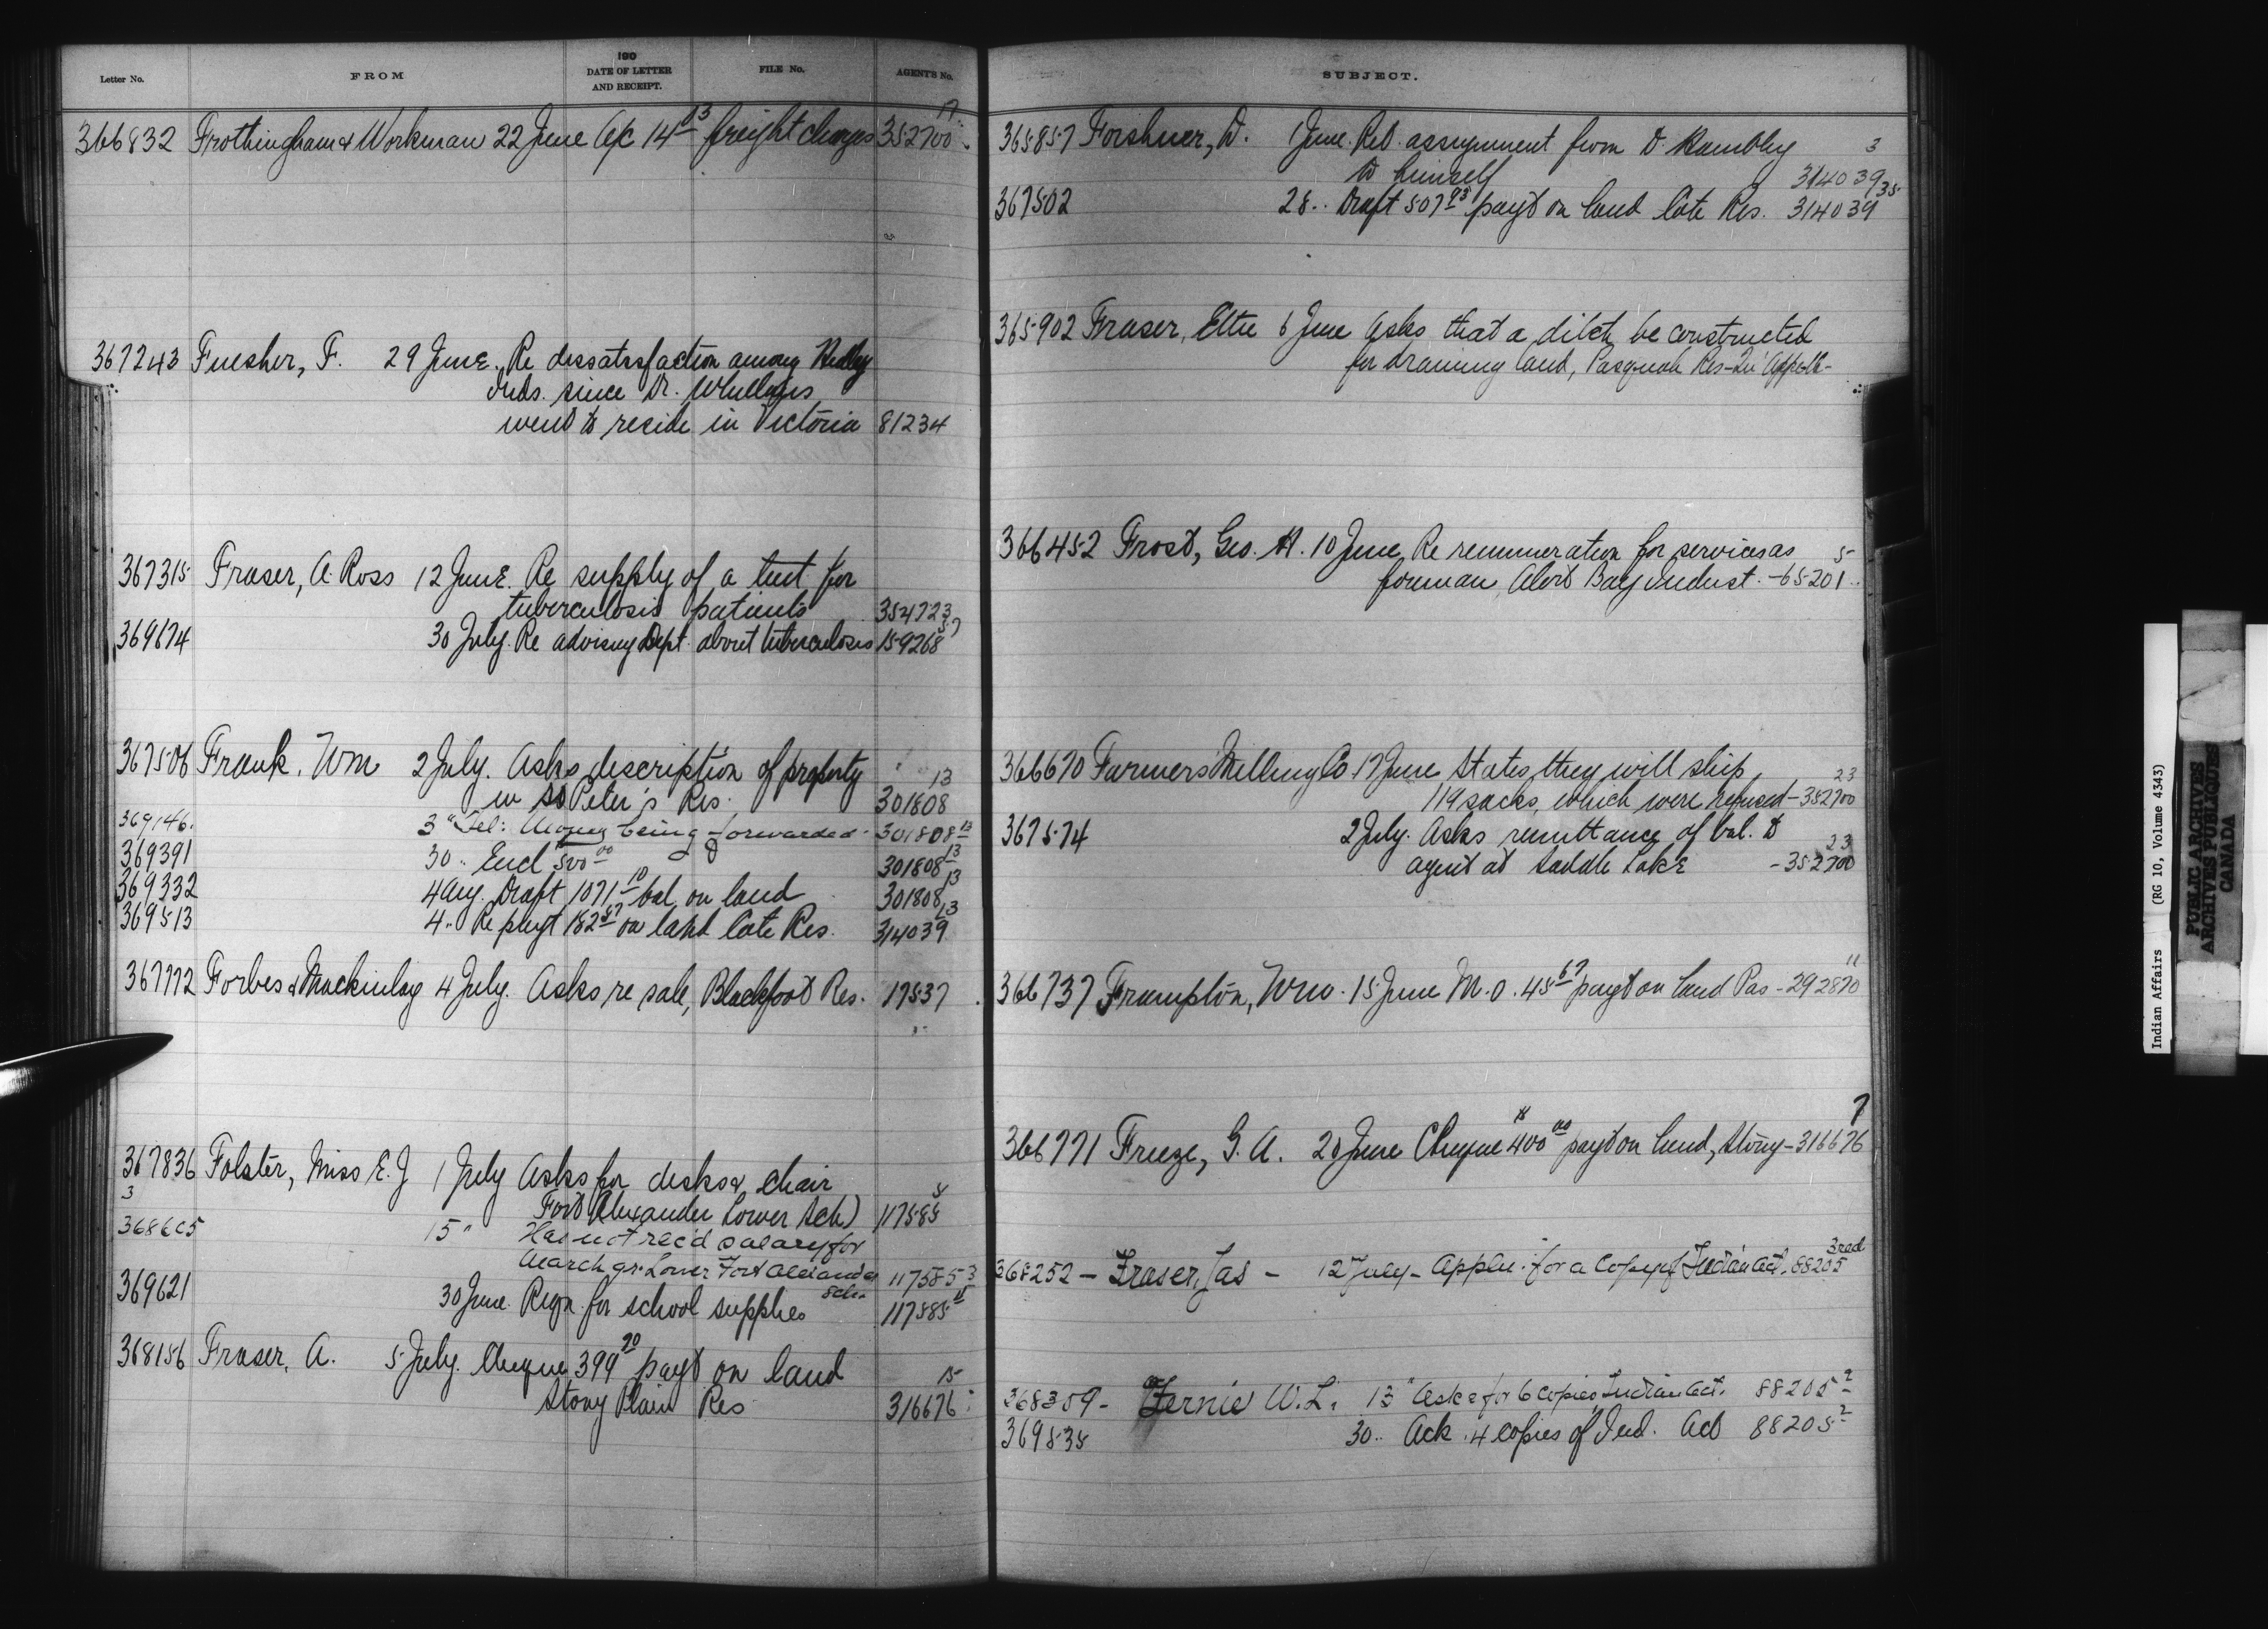 Letter No. FROM 190 DATE OF LETTER AND RECEIPT. FILE No. AGENT'S No.
17
366832 Frothingham & Workman 22 June a/c 14 03 freight charges 352700
367243 Fuesher, F. 29 June. Re dissatisfaction among Hedley
Inds. since Dr. Whillans
went to reside in Victoria 81234
367315 Fraser, A. Ross 12 June. Re supply of a tent for
tuberculosis patients 354723
369674 30 July. Re advising Dept. about tuberculosis 159268 57
367506 Frank, Wm 2 July. Asks description of property 13
in St Peter's Res. 301808
369146. 3 " Tel: Money being forwarded. 301808 13
369391 30 .. Encl 500 00 301808 13
369332 4 Aug. Draft 1071 10 bal on land 301808 13
369513 4 .. Re payt 182 87 on land late Res. 314039 13
367772 Forbes & Mackinlay 4 July. Asks re sale, Blackfoot Res. 17537
367836 Folster, Miss E. J 1 July Asks for desks & chair
Fort Alexander Lower Sch) 117585
368605 15 " Has not rec'd salary for
March qr. Lower Fort Alexander Sch. 117585 3
369621 30 June. Reqn. for school supplies 117585
368156 Fraser, A. 5 July. Cheque 399 20 payt on land 15
Stony Plain Res 316676
SUBJECT.
365857 Forshner, D. 1 June. Ret. assignment from D. Hambley 3
to himself 314039
367502 28 .. Draft 507 93 payt on land late Res. 314039 35
365902 Fraser, Ettie 6 June Asks that a ditch be constructed
for draining land, Pasquah Res - Qu'Appelle -
366452 Frost, Geo. H. 10 June. Re remuneration for services as 5
foreman Alert Bay Indust. - 65201
366670 Farmers Milling Co. 17 June States they will ship 23
119 sacks, which were refused - 352700
367574 2 July. Asks remittance of bal. to 23
agent at Saddle Lake - 352700
366737 Frampton, Wm. 15 June M.O. 45 67 payt on land Pas - 292870 11
7
366771 Freeze, G. A. 20 June Cheque 400 00 payt on land, Stony - 316676
368252 - Fraser, Jas - 12 July - Appln. for a Copy of Indian Act. 88205 3 red
368359 - Fernie W. L. 13 " Asks for 6 copies Indian Act. 88205 2
369535 30 .. Ack. 4 copies of Ind. Act 88205 2
Indian Affairs (RG 10, Volume 4343)
PUBLIC ARCHIVES
ARCHIVES PUBLIQUES
CANADA